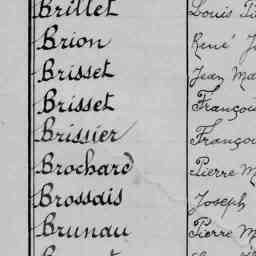 Brillet Louis
Brion René
Brisset Jean Ma
Brisset Françoi
Brissier Françoi
Brochard Pierre M
Brossais Joseph
Brunau Pierre M